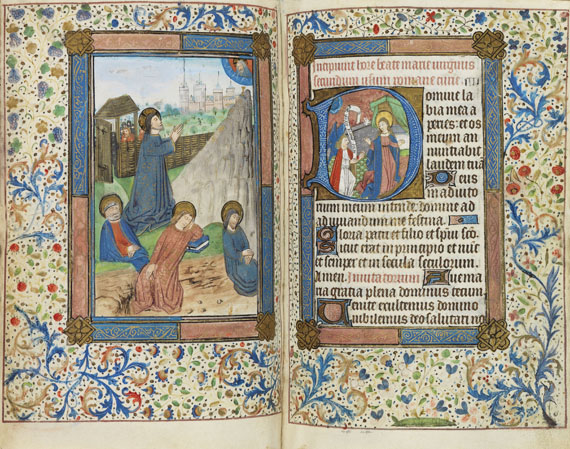 Incipiunt hore beate marie virginis
secundum usum romane curie
Domine la
bia mea a
peries: et os
meum an
nuntiabit
laudem tuã
Deus
in adiuto
rium meum intende: domine ad
adiuuandum me festina.
Gloria patri et filio et spiui sc̃o
Sicut erat in principio et nũc
et semper et in secula seculorum.
Amen. Inuitatorium Aue ma
ria gratia plena dominus tecum
Uenite exultemus domino
iubilemus deo salutari nr̃o